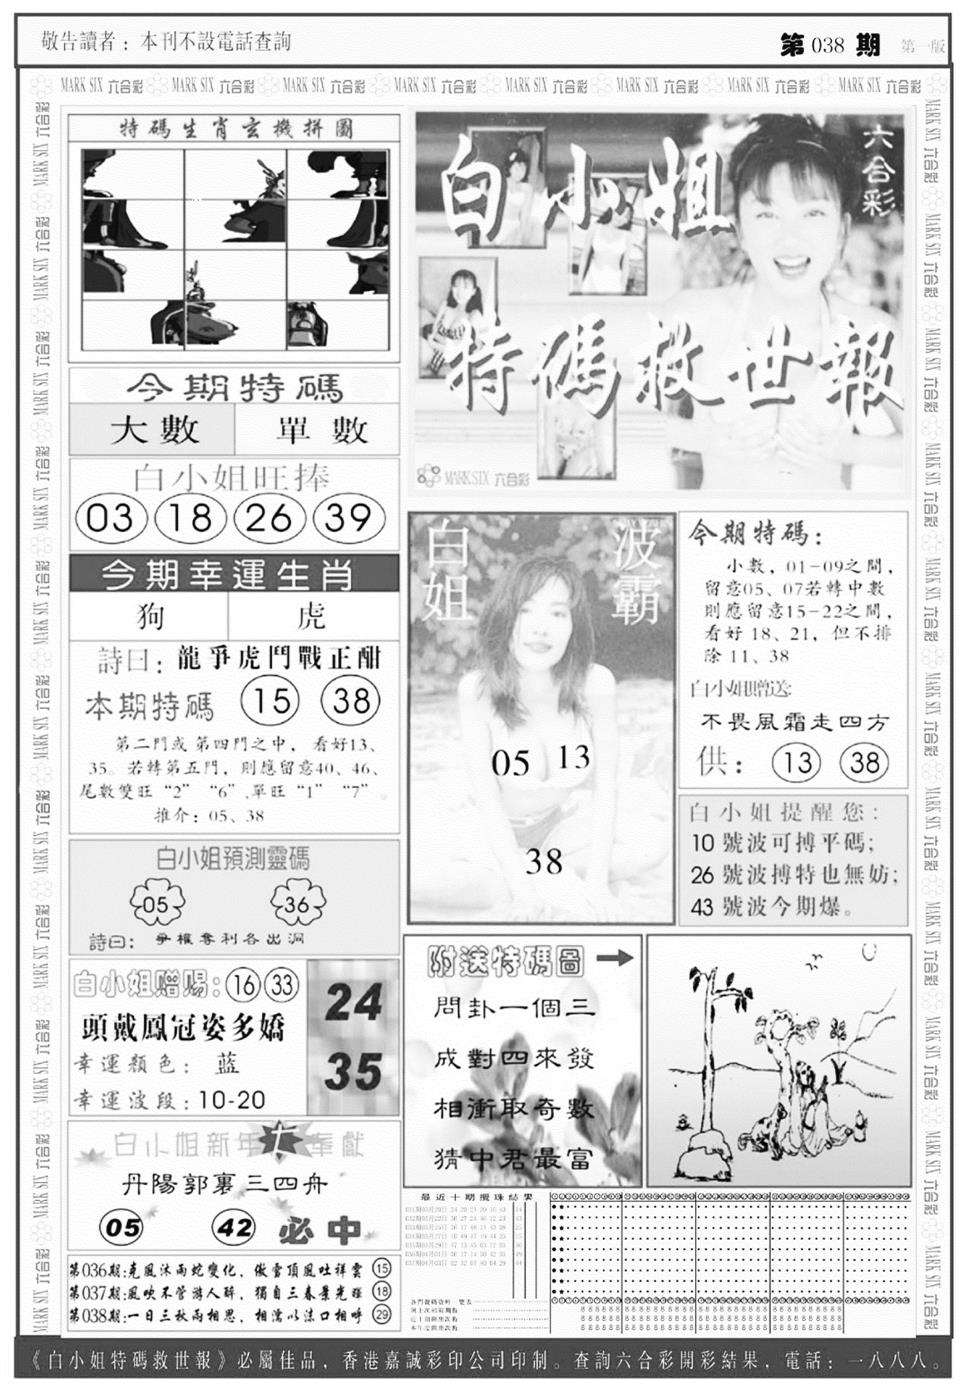 敬告讀者：本刊不設電話查詢
第 038 期 第一版
MARK SIX 六合彩 MARK SIX 六合彩 MARK SIX 六合彩 MARK SIX 六合彩 MARK SIX 六合彩 MARK SIX 六合彩 MARK SIX 六合彩 MARK SIX 六合彩
特碼生肖玄機拼圖
今期特碼
大數 單數
白小姐旺捧
03 18 26 39
今期幸運生肖
狗 虎
詩曰：龍爭虎鬥戰正酣
本期特碼 15 38
第二門或第四門之中，看好13、
35。若轉第五門，則應留意40、46、
尾數雙旺“2” “6”,單旺“1” “7”。
推介：05、38
白小姐預測靈碼
05 36
詩曰：爭權奪利各出洞
白小姐赠赐：16 33
頭戴鳳冠姿多嬌
幸運顏色：蓝
幸運波段：10-20
24
35
白小姐新年大奉獻
丹陽郭裏三四舟
05 42 必中
第036期:克風沐雨蛇變化，傲雪頂風吐祥雲 15
第037期:風吹不管游人醉，獨自三春景光輝 18
第038期:一日三秋兩相思，相濡以沫口相呼 29
六合彩
白小姐
特碼救世報
MARK SIX 六合彩
白姐 波霸
05 13
38
今期特碼：
小數，01-09之間，
留意05、07若轉中數
則應留意15-22之間，
看好 18、21，但不排
除 11、38
白小姐赠送:
不畏風霜走四方
供：13 38
白小姐提醒您：
10 號波可搏平碼；
26 號波搏特也無妨；
43 號波今期爆。
附送特碼圖
問卦一個三
成對四來發
相衝取奇數
猜中君最富
最近十期攪珠結果
《白小姐特碼救世報》必屬佳品，香港嘉誠彩印公司印制。查詢六合彩開彩結果，電話：一八八八。